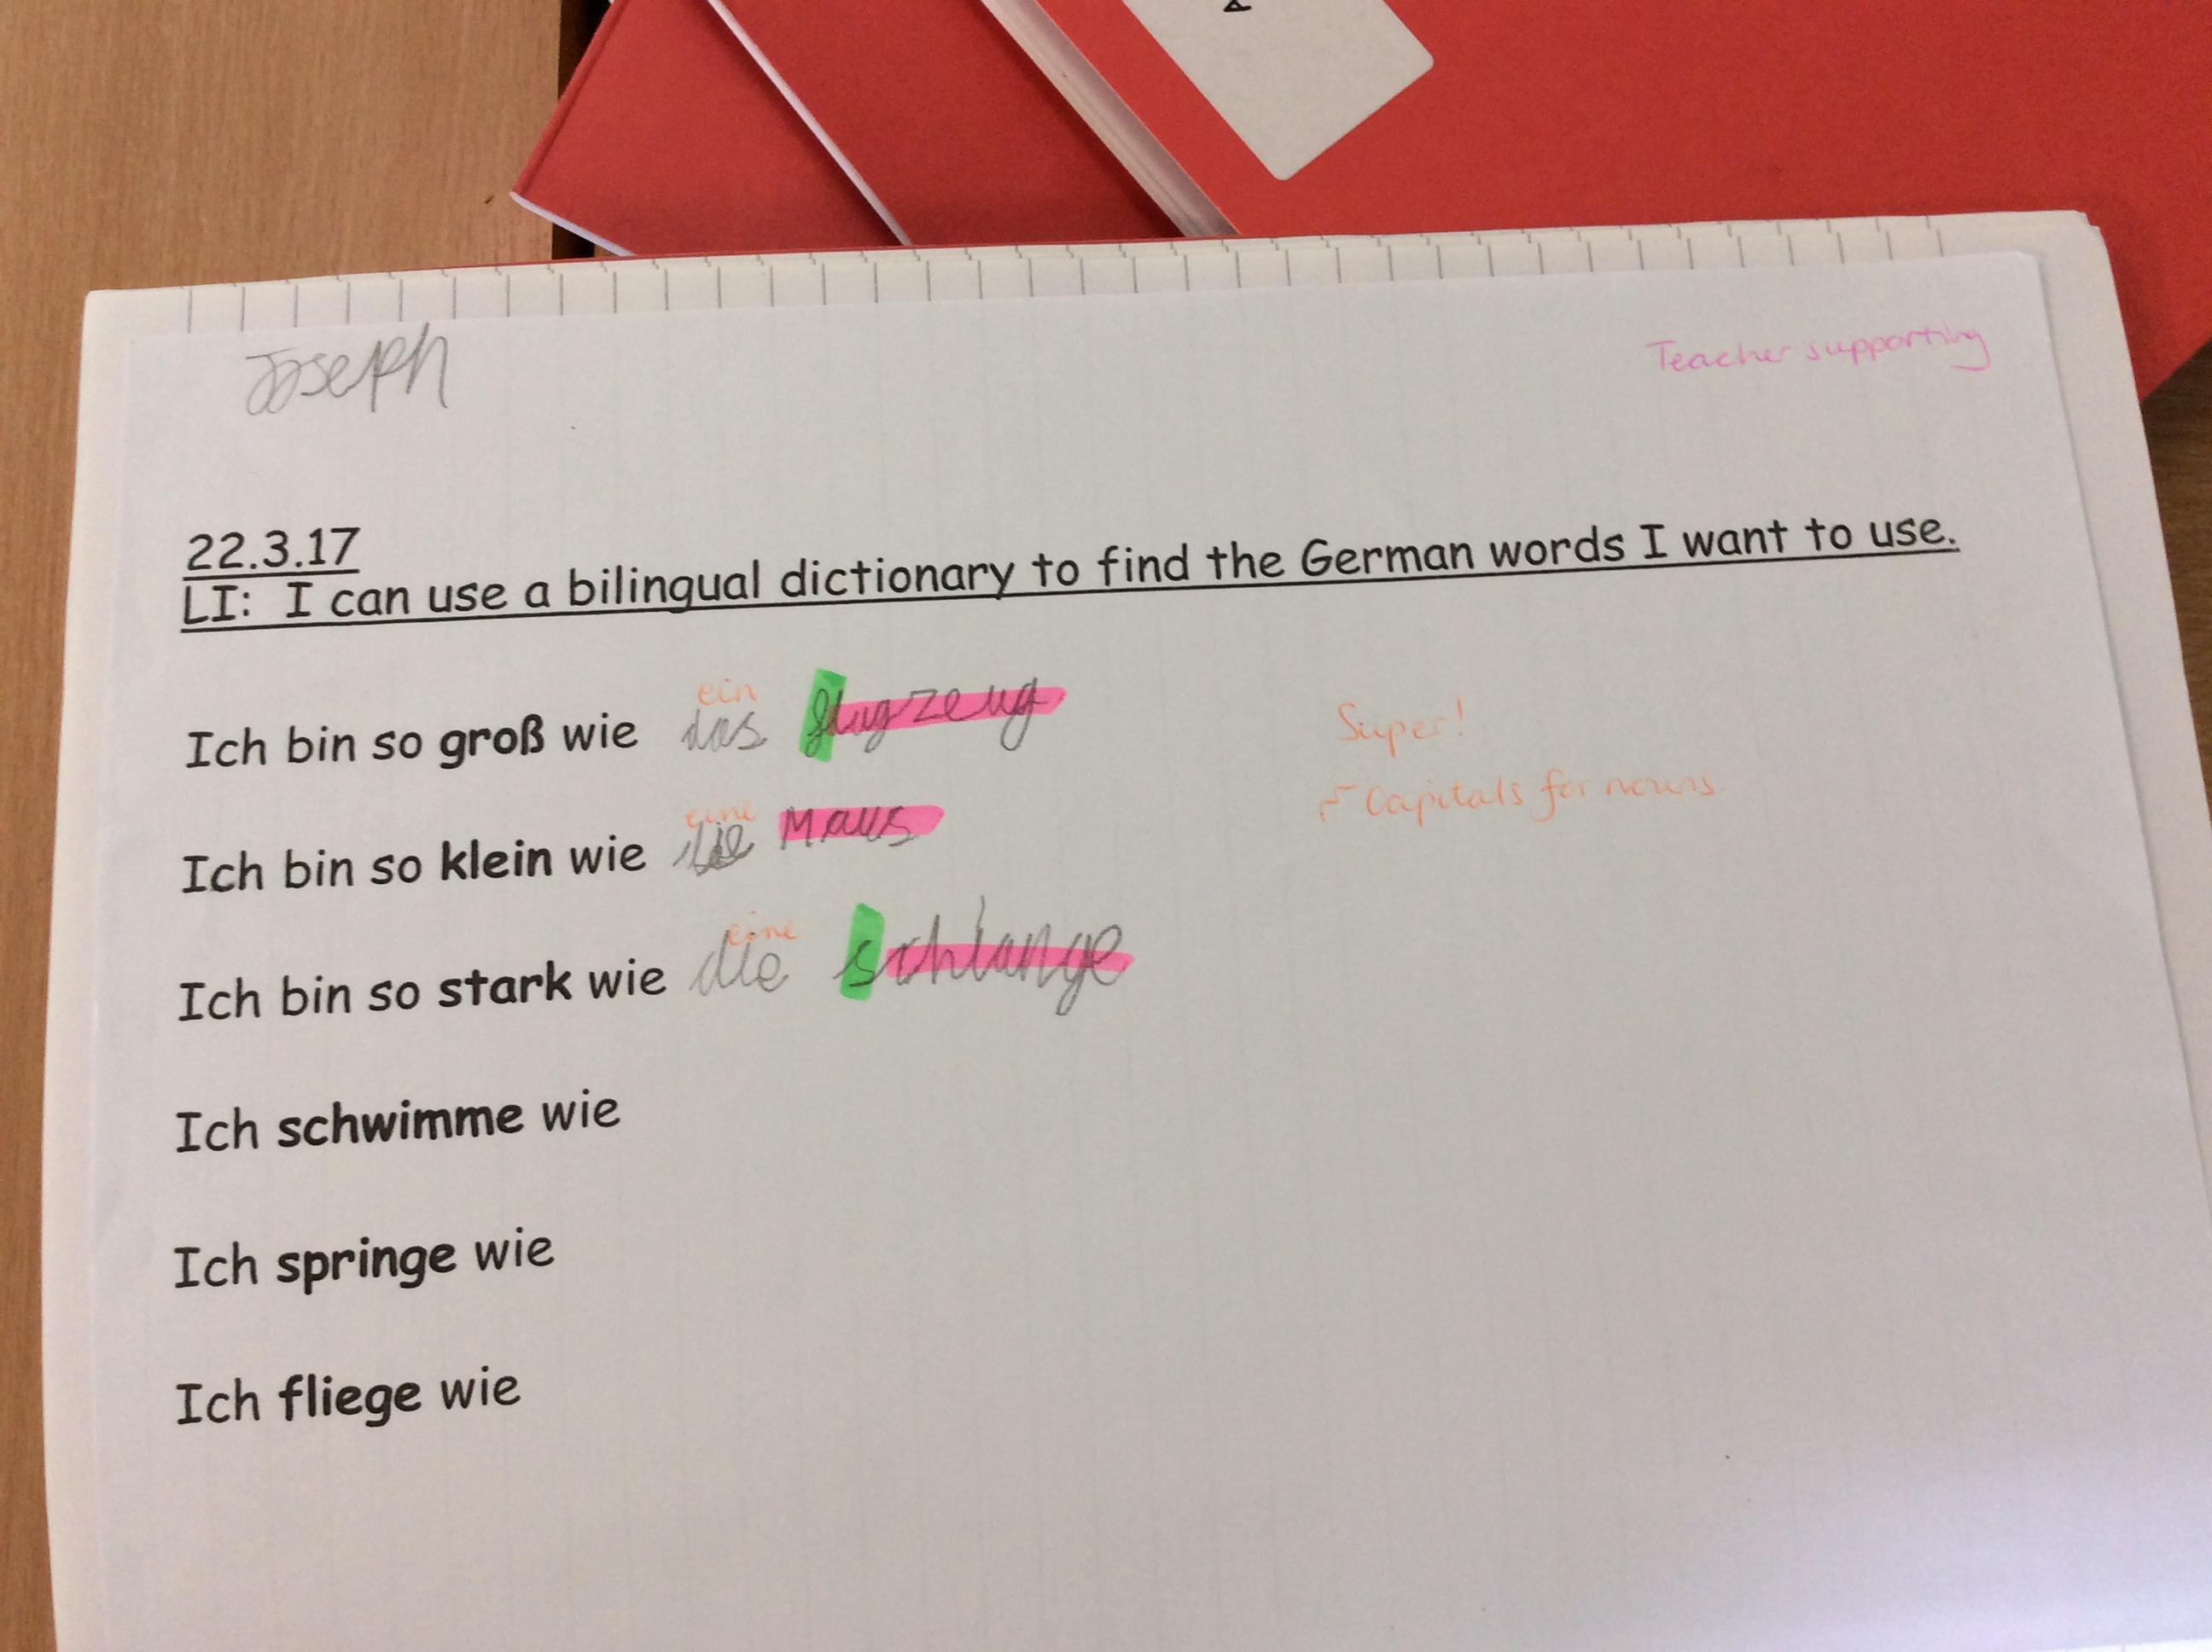 Joseph
Teacher supporting
22.3.17
LI: I can use a bilingual dictionary to find the German words I want to use.
ein
Ich bin so groß wie das flugzeug
Super!
Capitals for nouns.
eine
Ich bin so klein wie die Maus
eine
Ich bin so stark wie die schlange
Ich schwimme wie
Ich springe wie
Ich fliege wie